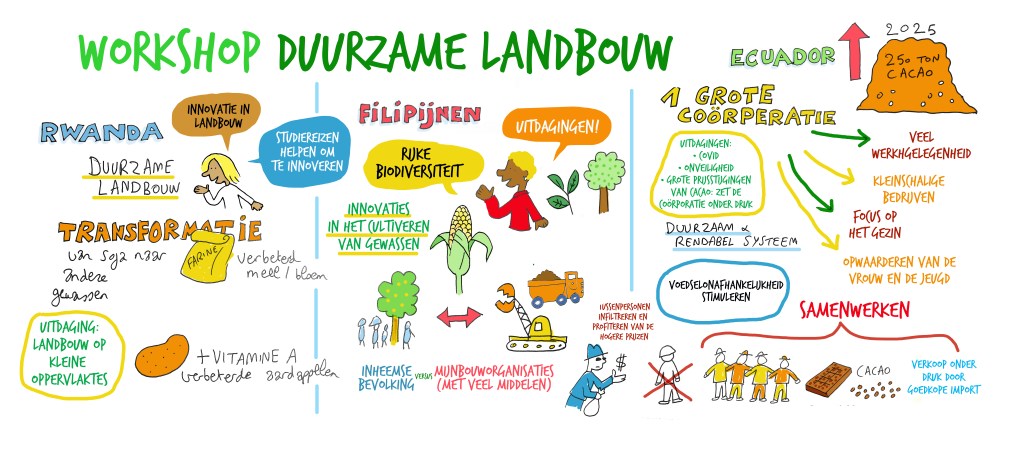 WORKSHOP DUURZAME LANDBOUW
RWANDA
INNOVATIE IN
LANDBOUW
DUURZAME
LANDBOUW
STUDIEREIZEN
HELPEN OM
TE INNOVEREN
TRANSFORMATIE
van soja naar
andere
gewassen
FARINE
verbeterd
meel / bloem
UITDAGING:
LANDBOUW OP
KLEINE
OPPERVLAKTES
+ VITAMINE A
verbeterde aardappelen
FILIPIJNEN
UITDAGINGEN!
RIJKE
BIODIVERSITEIT
INNOVATIES
IN HET CULTIVEREN
VAN GEWASSEN
INHEEMSE
BEVOLKING
VERSUS
MIJNBOUWORGANISATIES
(MET VEEL MIDDELEN)
TUSSENPERSONEN
INFILTREREN EN
PROFITEREN VAN DE
HOGERE PRIJZEN
$
ECUADOR
2025
250 TON
CACAO
1 GROTE
COÖRPERATIE
UITDAGINGEN:
• COVID
• ONVEILIGHEID
• GROTE PRIJSSTIJGINGEN
VAN CACAO: ZET DE
COÖRPORATIE ONDER DRUK
DUURZAAM &
RENDABEL SYSTEEM
VOEDSELONAFHANKELIJKHEID
STIMULEREN
VEEL
WERKHGELEGENHEID
KLEINSCHALIGE
BEDRIJVEN
FOCUS OP
HET GEZIN
OPWAARDEREN VAN DE
VROUW EN DE JEUGD
SAMENWERKEN
CACAO
VERKOOP ONDER
DRUK DOOR
GOEDKOPE IMPORT